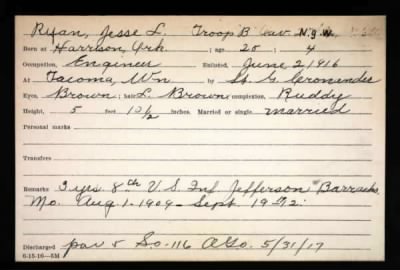 Ryan, Jesse L. Troop B Cav. N.G.W.
Born at Harrison, Ark ; age, 28 / 4
Occupation, Engineer Enlisted, June 2, 1916
At Tacoma, Wn by
Eyes, Brown ; hair L. Brown ; complexion, Ruddy
Height, 5 feet 10 1/2 inches. Married or single married
Personal marks
Transfers
Remarks 3 yrs. 8th U.S. Inf. Jefferson Barracks
Mo. Aug 1-1909 - Sept. 1912.
Discharged par 5 S.O. 116 A.G.O. 5/31/17
6-15-16—5M